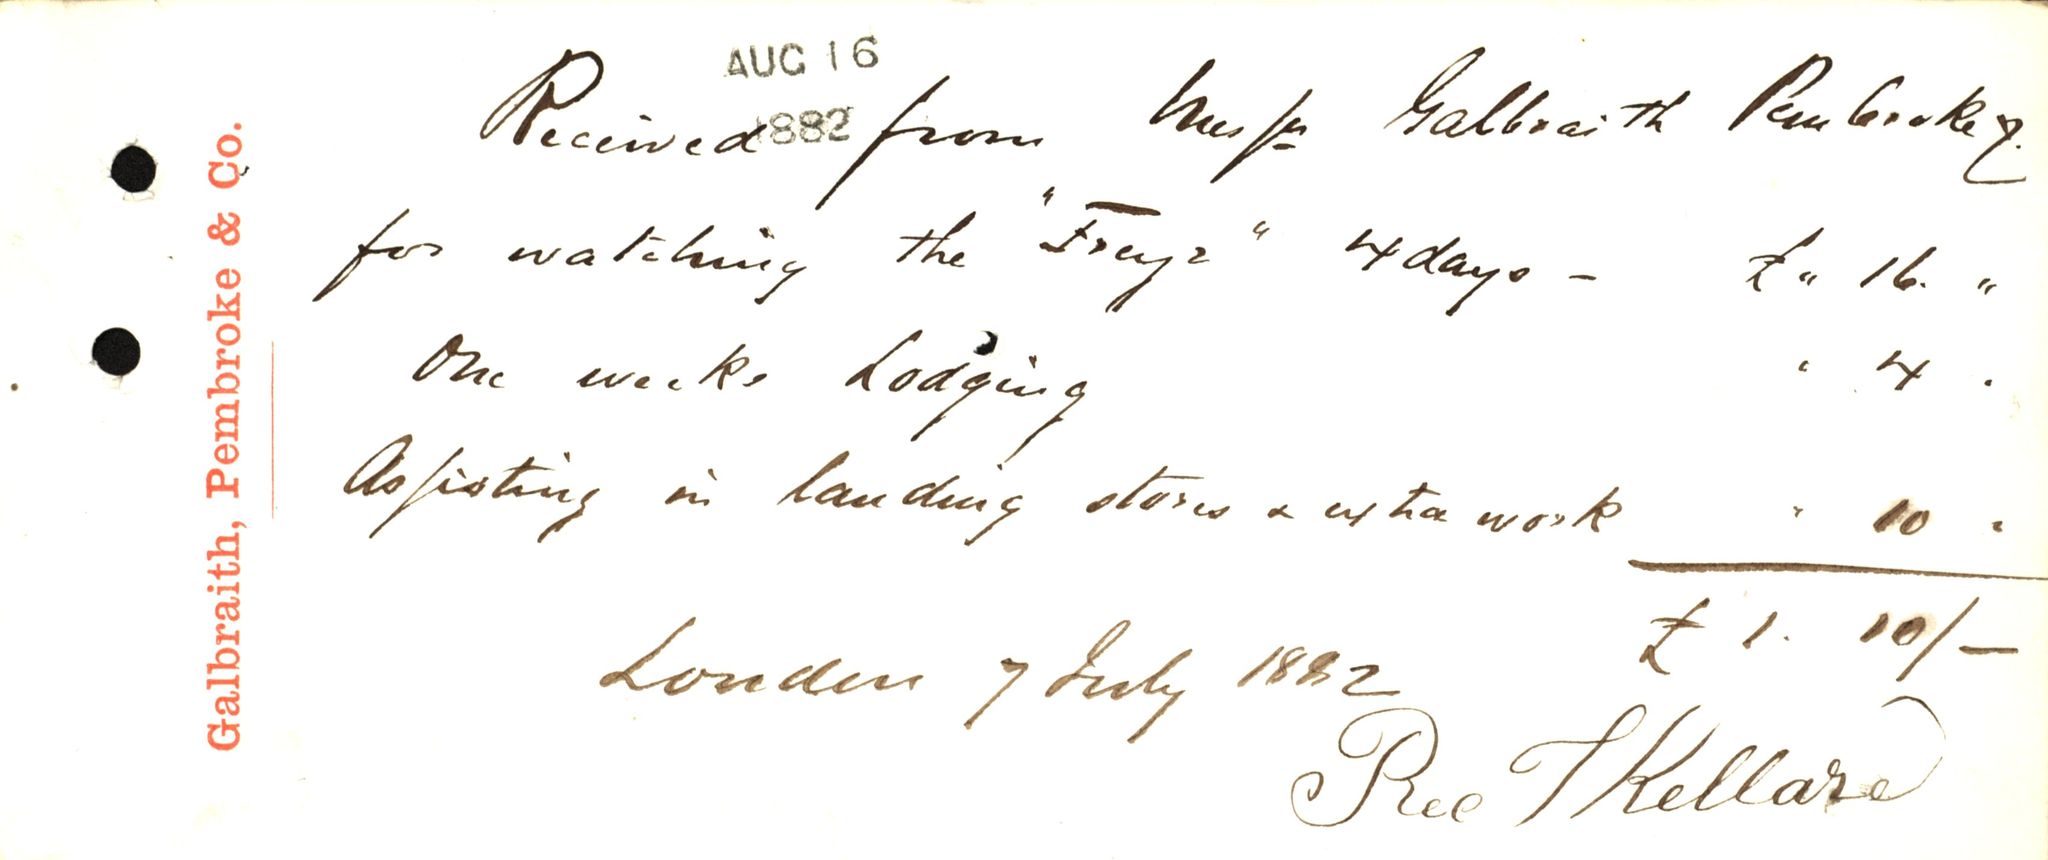 Galbraith, Pembroke & Co.
AUG 16
1882
Received from Messrs Galbraith Pembroke &
for watching the "Freyr" 4 days - £ " 16. "
One weeks Lodging " 4 "
Assisting in landing stores & extra work " 10 "
£ 1. 10/-
London 7 July 1882
Rec T Kellard